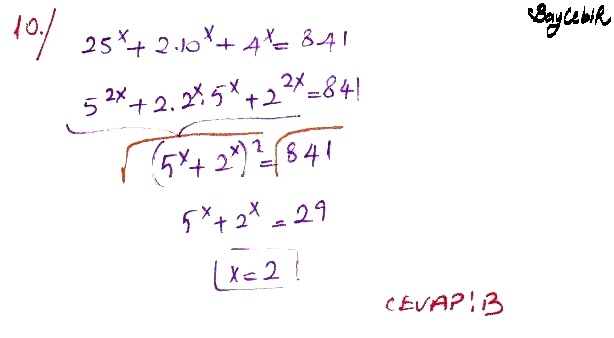 BayCebiR
10./
25^x + 2.10^x + 4^x = 841
5^2x + 2.2^x.5^x + 2^2x = 841
√(5^x + 2^x)^2 = √841
5^x + 2^x = 29
x = 2
CEVAP: B